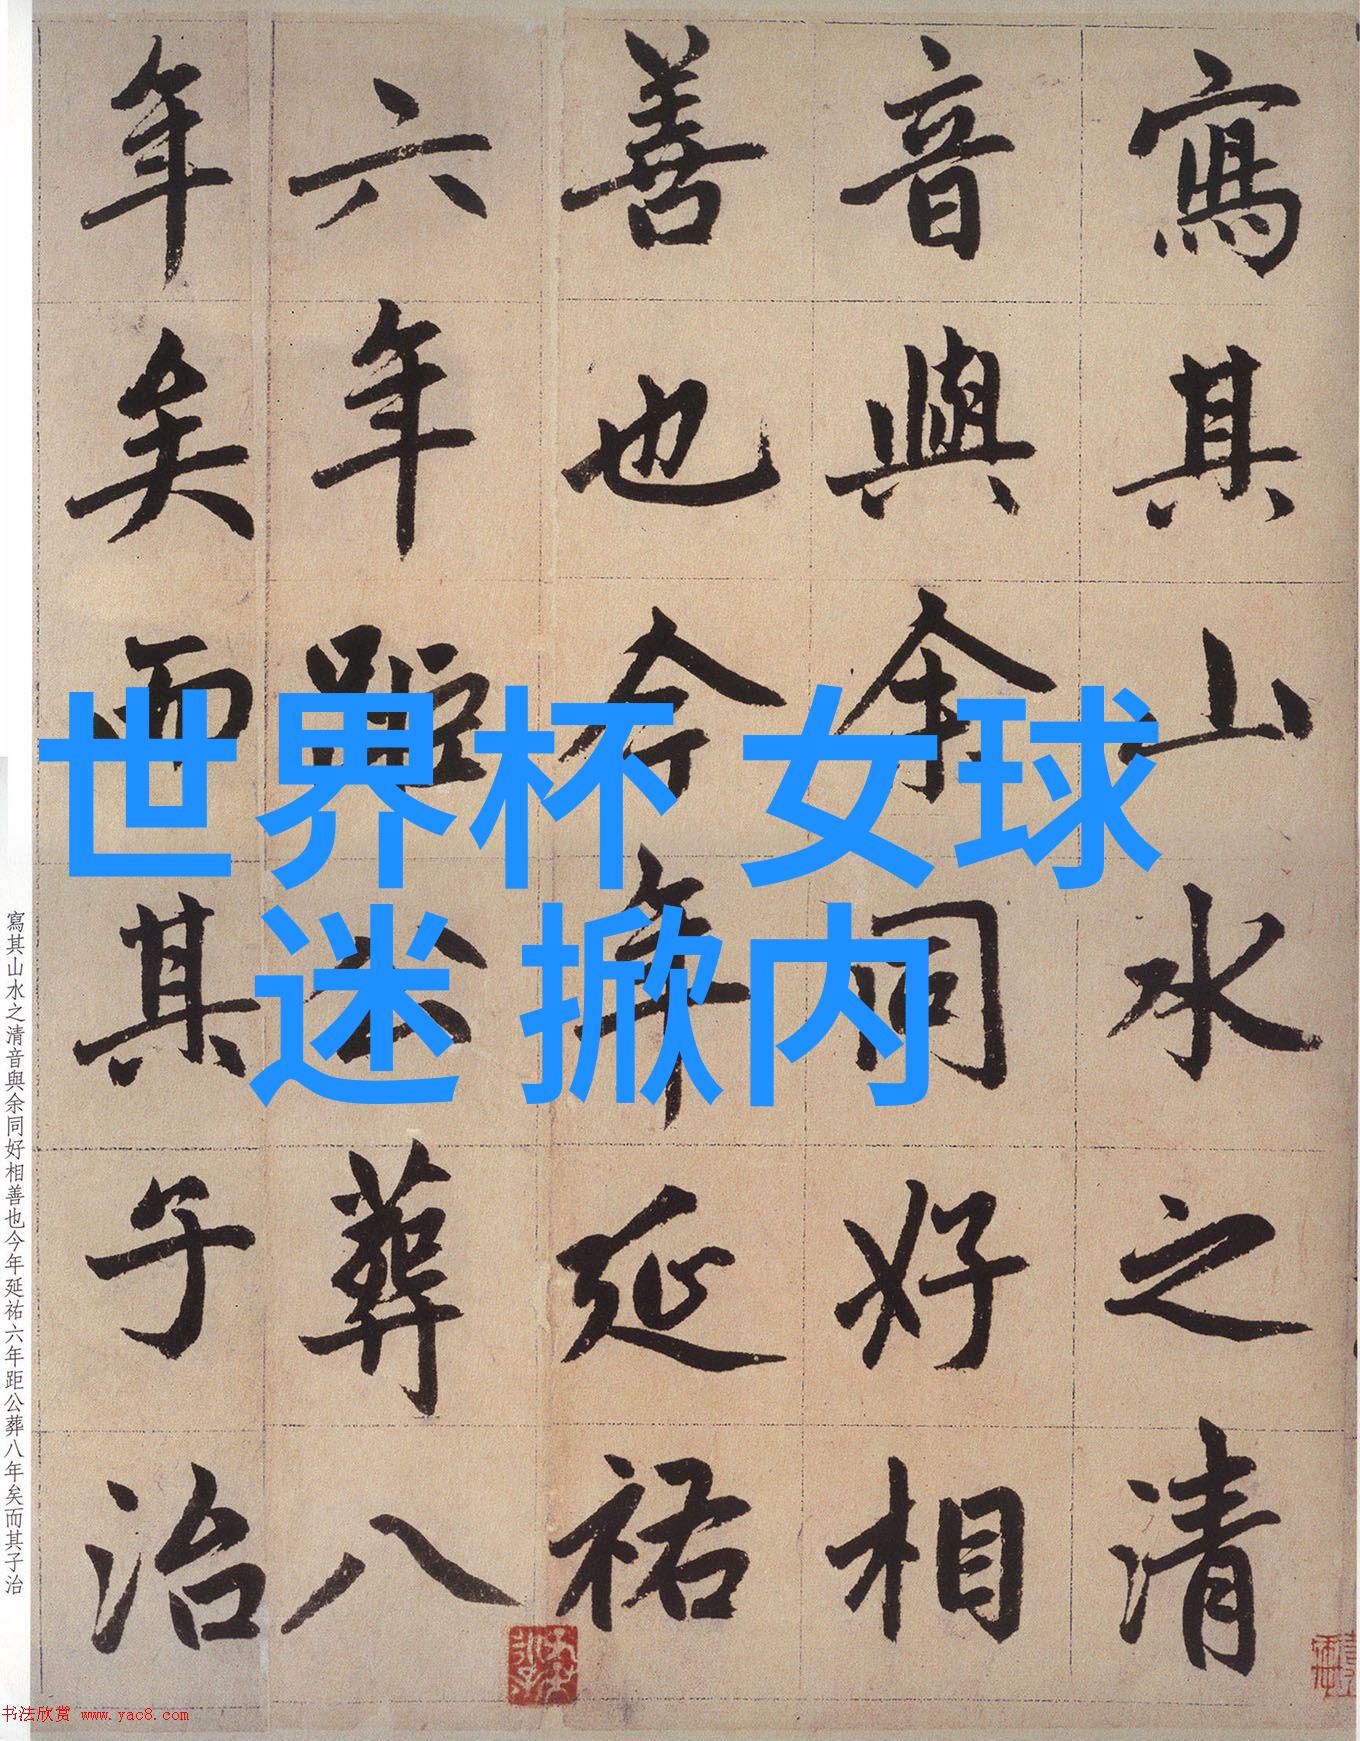 寫其山水之清
音與余同好相
善也今年延祐
六年距公葬八
年矣而其子治
世界杯 女球
迷 掀内
寫其山水之清音與余同好相善也今年延祐六年距公葬八年矣而其子治
书法欣赏 www.yac8.com